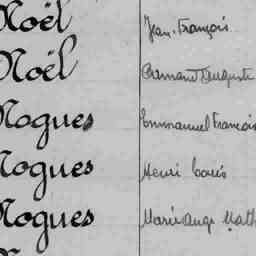 Noël Jean-François
Noël Armand Auguste
Nogues Emmanuel François
Nogues Henri Louis
Nogues Marie Ange Math